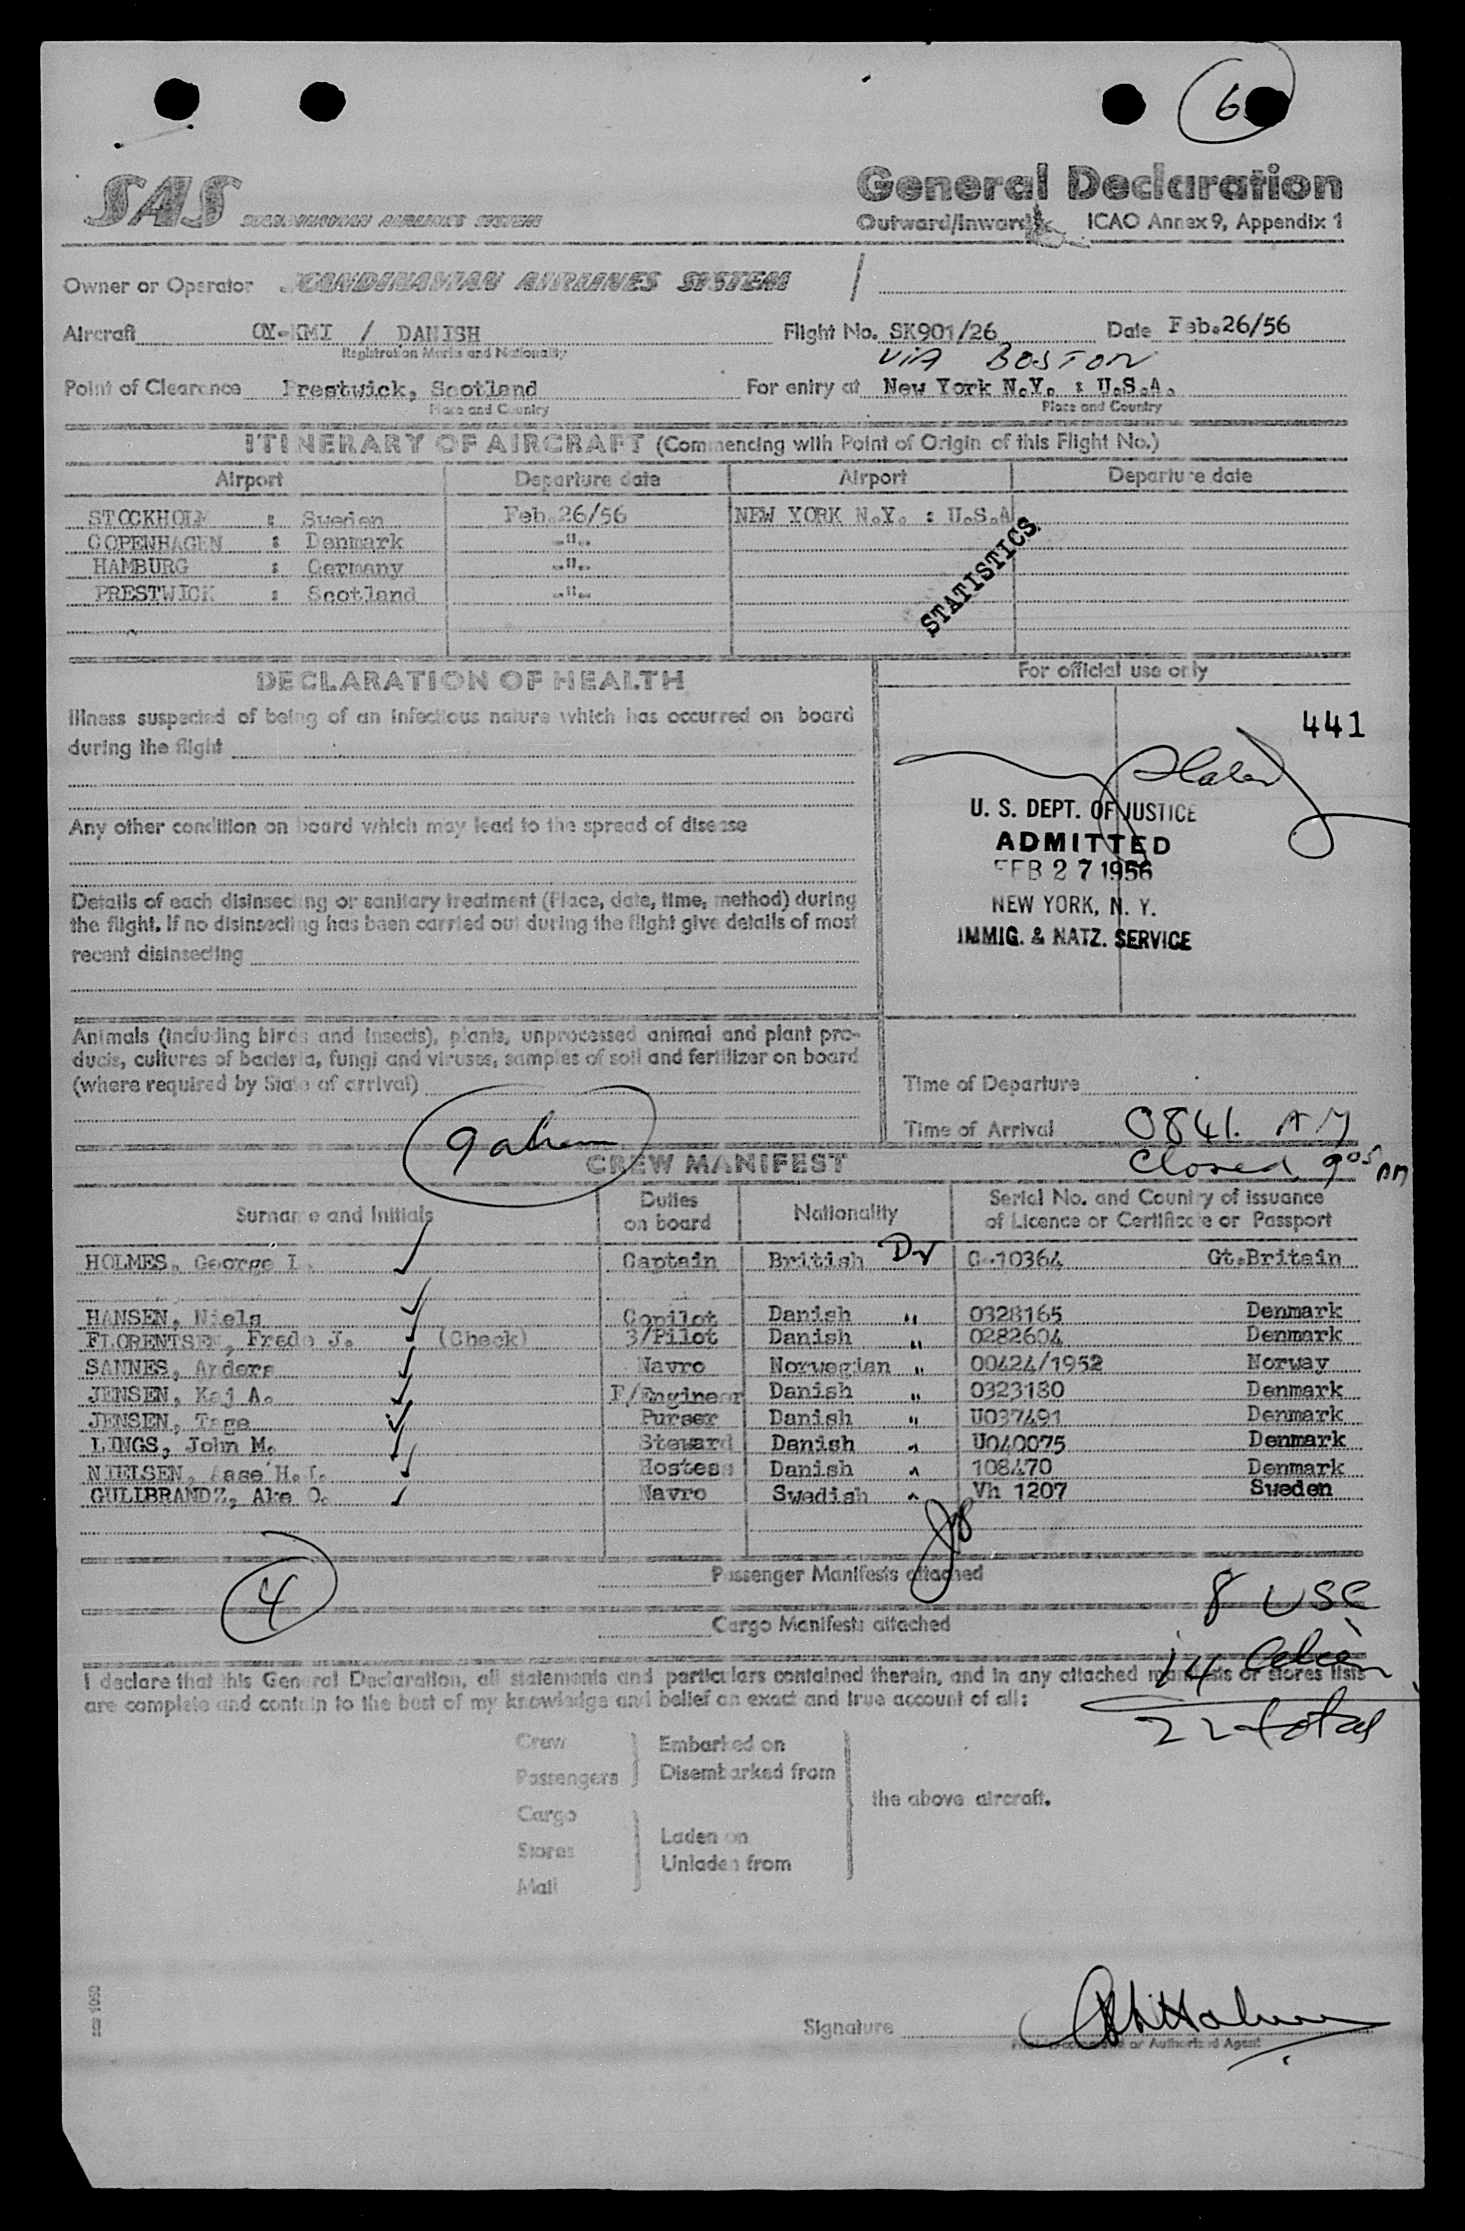 6
SAS SCANDINAVIAN AIRLINES SYSTEM
General Declaration
Outward/Inward ICAO Annex 9, Appendix 1
Owner or Operator SCANDINAVIAN AIRLINES SYSTEM /
Aircraft OY-KMI / DANISH Flight No. SK901/26 Date Feb.26/56
Registration Marks and Nationality
VIA BOSTON
Point of Clearance Prestwick, Scotland For entry at New York N.Y. : U.S.A.
Place and Country Place and Country
ITINERARY OF AIRCRAFT (Commencing with Point of Origin of this Flight No.)
Airport Departure date Airport Departure date
STOCKHOLM : Sweden Feb.26/56 NEW YORK N.Y. : U.S.A.
COPENHAGEN : Denmark -"-
HAMBURG : Germany -"-
PRESTWICK : Scotland -"-
STATISTICS
DECLARATION OF HEALTH
For official use only
Illness suspected of being of an infectious nature which has occurred on board
during the flight
441
Any other condition on board which may lead to the spread of disease
U. S. DEPT. OF JUSTICE
ADMITTED
FEB 27 1956
NEW YORK, N. Y.
IMMIG. & NATZ. SERVICE
Details of each disinsecting or sanitary treatment (Place, date, time, method) during
the flight. If no disinsecting has been carried out during the flight give details of most
recent disinsecting
Animals (including birds and insects), plants, unprocessed animal and plant pro-
ducts, cultures of bacteria, fungi and viruses, samples of soil and fertilizer on board
(where required by State of arrival)
Time of Departure
Time of Arrival 0841. AM
Closed 9 05 AM
CREW MANIFEST
Surname and Initials Duties on board Nationality Serial No. and Country of issuance
of Licence or Certificate or Passport
HOLMES, George L. Captain British C-10364 Gt.Britain
HANSEN, Niels Copilot Danish " 0328165 Denmark
FLORENTSEN, Frede J. (Check) 3/Pilot Danish " 0282604 Denmark
SANNES, Anders Navro Norwegian " 00424/1952 Norway
JENSEN, Kaj A. F/Engineer Danish " 0323180 Denmark
JENSEN, Tage Purser Danish " U037491 Denmark
LINGS, John M. Steward Danish " U040075 Denmark
NIELSEN, Aase H.I. Hostess Danish " 108470 Denmark
GULLBRANDZ, Ake O. Navro Swedish " Vh 1207 Sweden
Passenger Manifests attached
4
8 USC
Cargo Manifests attached
14 Alien
I declare that this General Declaration, all statements and particulars contained therein, and in any attached manifests or stores lists
are complete and contain to the best of my knowledge and belief an exact and true account of all:
22 total
Crew Embarked on
Passengers Disembarked from
the above aircraft.
Cargo
Stores Laden on
Unladen from
Mail
Signature
Pilot in command or Authorized Agent